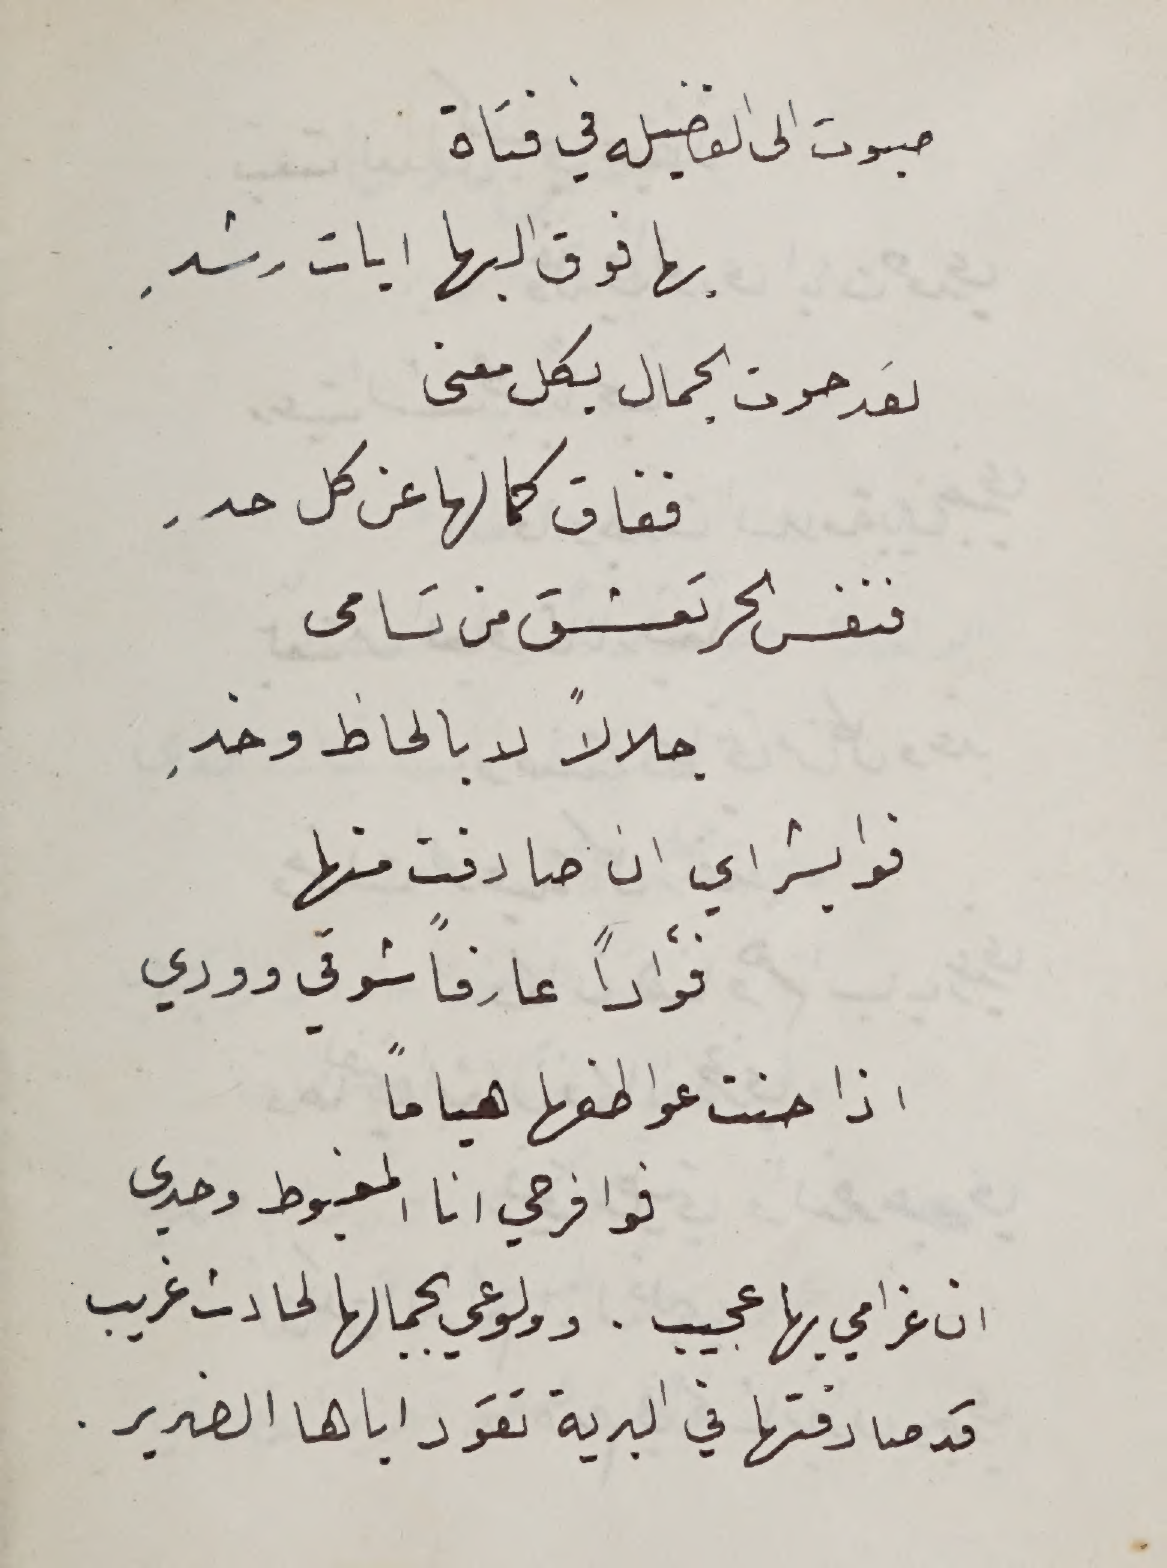 صبوت الى الفضيله في فتاة
بها فوق البها ايات رشدِ
لقد حوت الجمال بكل معنى
ففاق كمالها عن كل حدِ
فنفس الحر تعشق من تسامى
جلالاً لا بالحاظ وخدِ
فوا بشراي ان صادفت منها
فؤاداً عارفاً شوقي وودي
اذا حنت عواطفها هياماً
فوا فرحي انا المغبوط وحدي
ان غرامي بها عجيب . وولوعي بجمالها لحادث غريب
قد صادفتها في البرية تقود اباها الضرير .